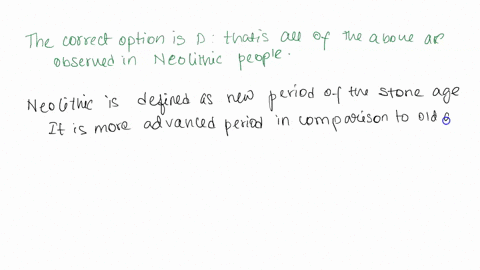 The correct option is D: that's all of the above are
observed in Neolithic people.
Neolithic is defined as new period of the stone age
It is more advanced period in comparison to old s